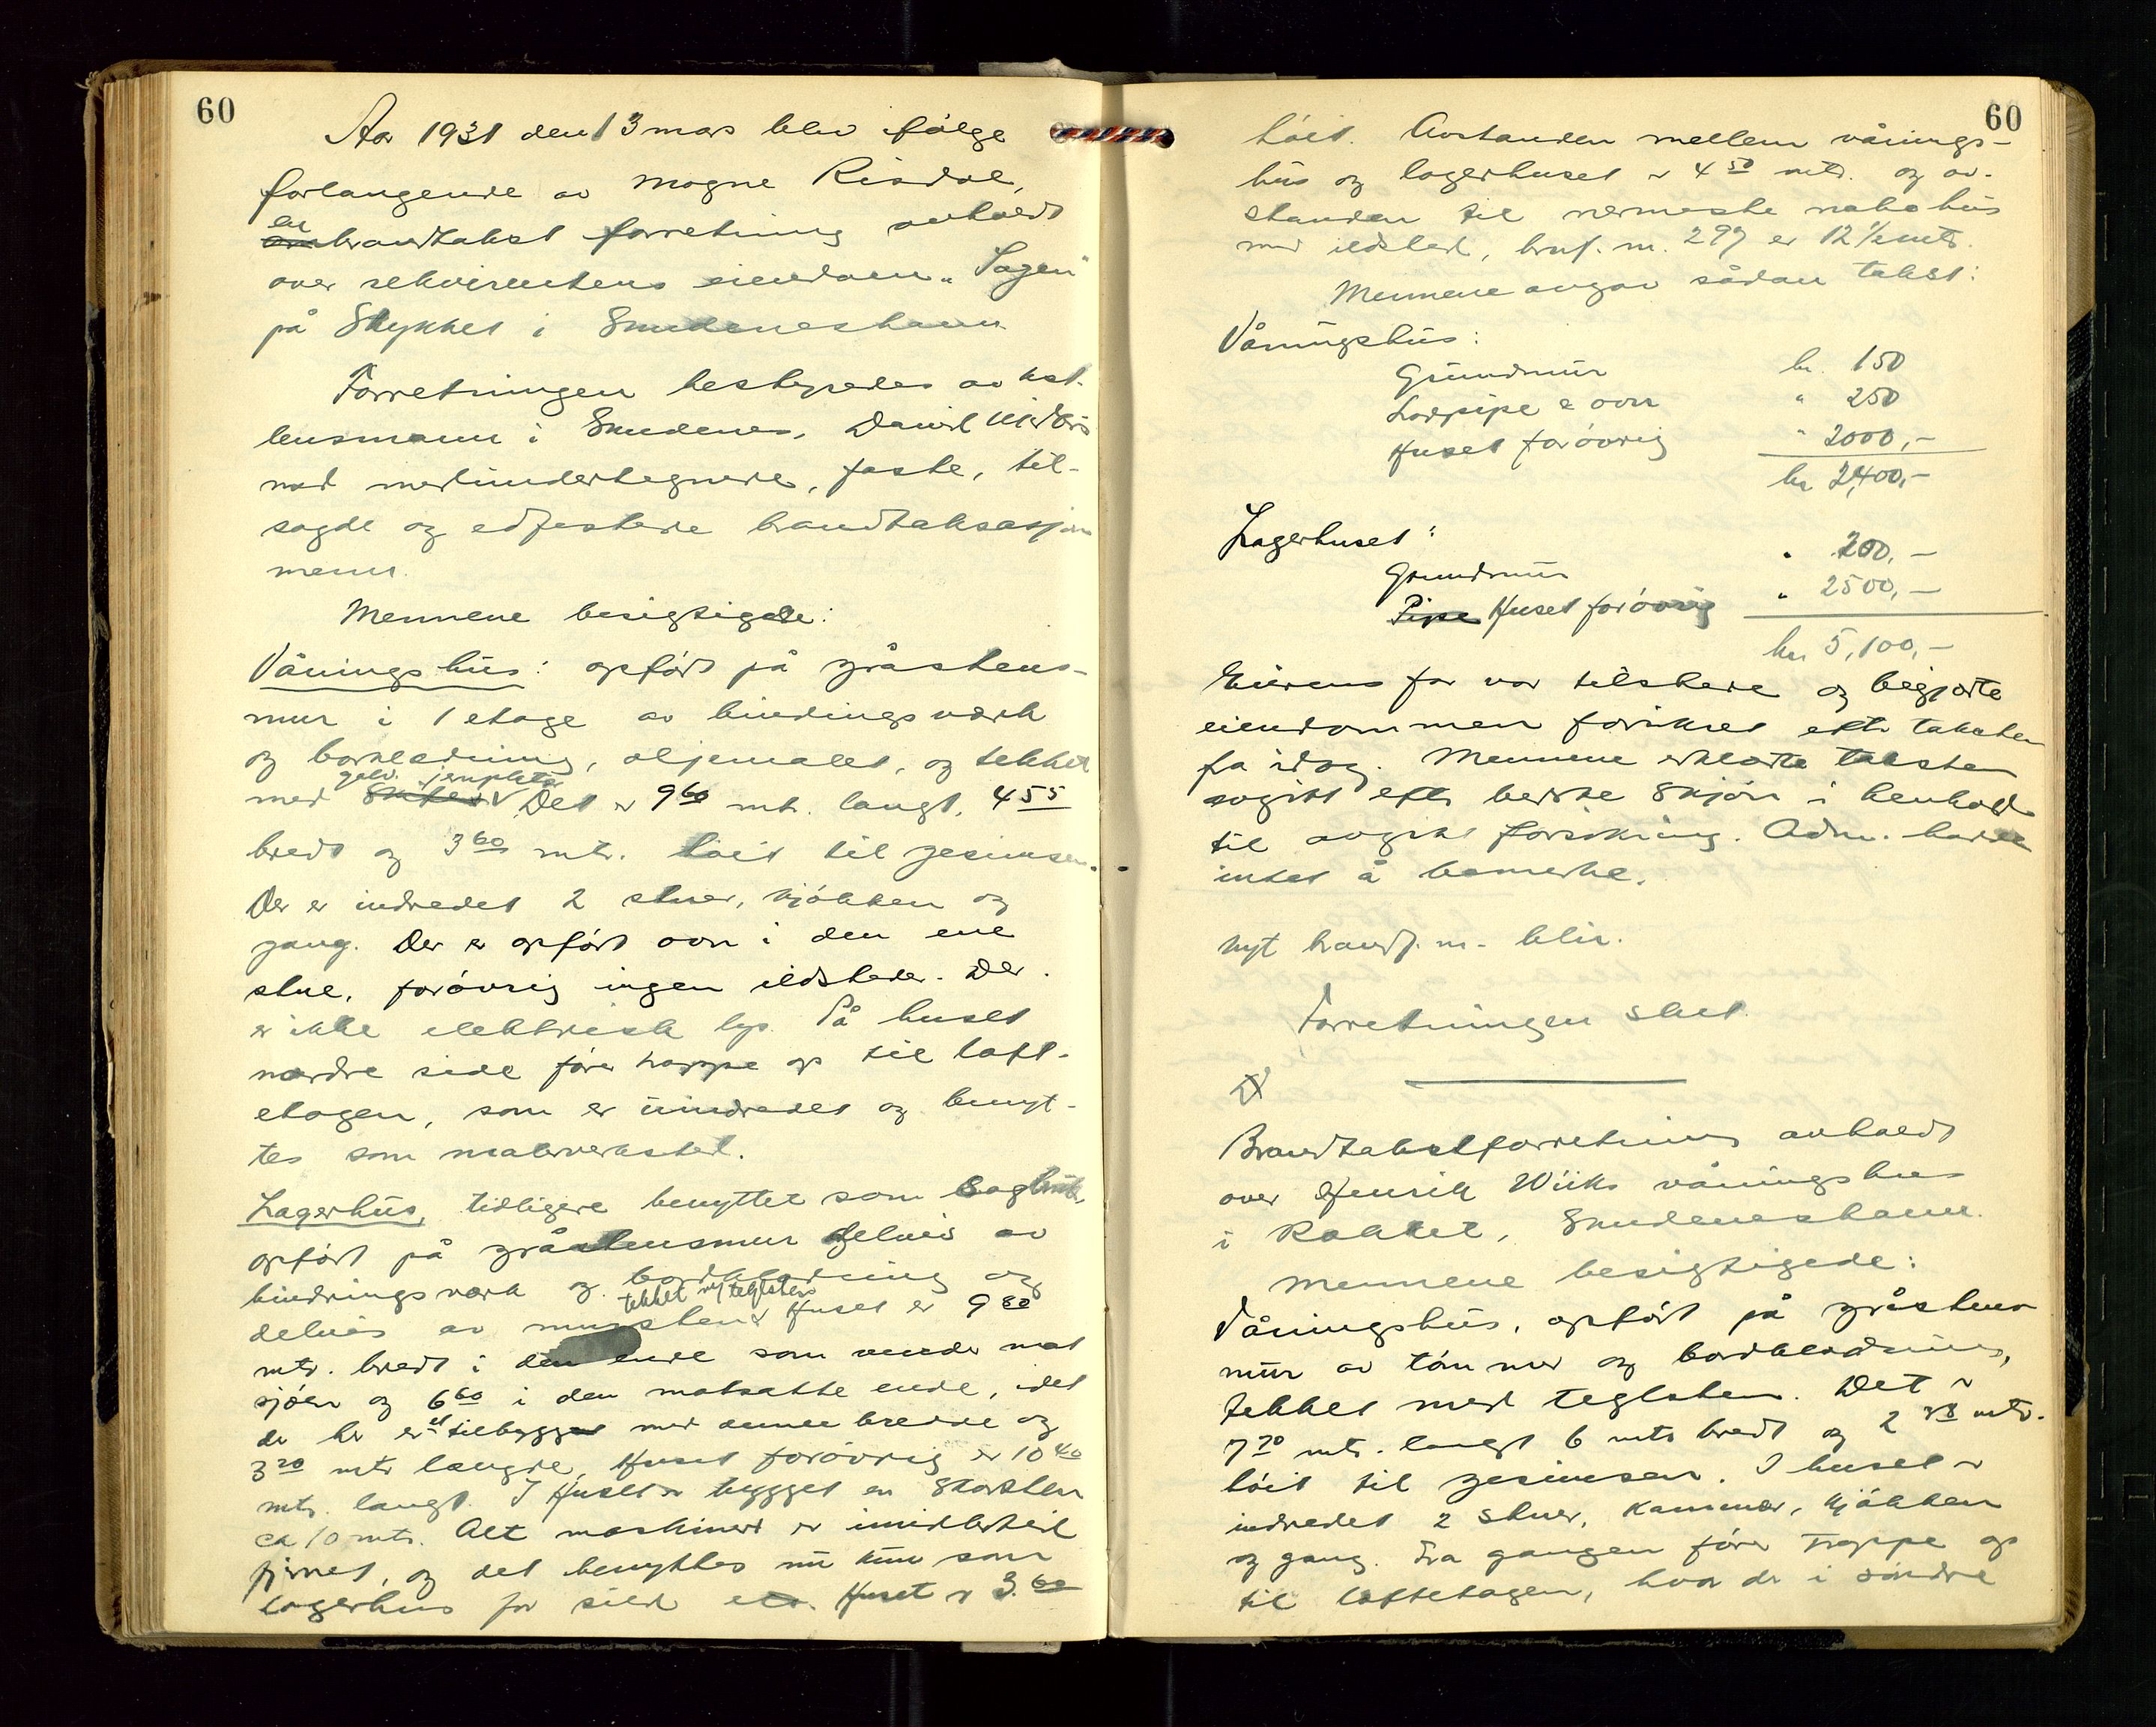 60
Aar 1931 den 13 mars blev ifølge
forlangende av Magne Risdal,
en brandtakst forretning avholdt
over rekvirentens eiendom „Sagen"
på Stykket i Skudeneshavn
Forretningen bestyredes av kst.
lensmann i Skudenes, Daniel
med medundertegnede, faste, til-
sagde og edfestede brandtaksasjons
menn.
Mennene besigtigede:
Våningshus: opført på gråstens-
mur i 1 etage av bindingsverk
og bordkledning, oljemalet, og tekket
galv. jernplater
med Skifer V Det er 9 60 mtr. langt, 4 55
bredt og 3 60 mtr. høit til gesimsen.
Der er indredet 2 stuer, kjøkken og
gang. Der er opført ovn i den ene
stue, forøvrig ingen ildsteder. Der
er ikke elektrisk lys. På huset
nordre side fører trappe op til loft-
etagen, som er uindredet og benyt-
tes som malerverksted.
Lagerhus, tidligere benyttet som Sagbruk,
opført på gråstensmur delvis av
bindingsverk og bordkledning og
tekket m/ teglsten
delvis av mursten V Huset er 9 80
mtr. bredt i den ende som vender mot
sjøen og 6 60 i den motsatte ende, idet
der her er et tilbygget med denne bredde og
3 20 mtr længde, Huset forøvrig er 10 40
mtr. langt. I Huset er bygget en Skorsten
ca 10 mtr. Alt maskineri er imidlertid
fjernet, og det benyttes nu kun som
lagerhus for sild etc. Huset er 3.60
60
høit. Avstanden mellem vånings-
hus og lagerhuset er 4 50 mtr. og av-
standen til nermeste nabohus
med ildsted, brnf. nr. 297 er 12 ½ mtr.
Mennene avgav sådan takst:
Våningshus:
Grundmur kr. 150
Lodpipe & ovn " 250
Huset forøvrig " 2000,-
kr 2,400,-
Lagerhuset:
Grundmur " 200,-
Pipe Huset forøvrig " 2500,-
kr 5,100,-
Eierens far var tilstede og begjærte
eiendommen forsikret efter taksten
fra idag. Mennene erklærte taksten
avgitt efter bedste Skjøn i henhold
til avgitt forsikring. Adm. hadde
intet å bemerke.
Nyt brandf. nr. blir.
Forretningen slut.
Brandtakstforretning avholdt
over Henrik Wiiks våningshus
i Rokket, Skudeneshavn.
Mennene besigtigede:
Våningshus, opført på gråstens
mur av tømmer og bordkledning,
tekket med teglsten. Det er
7 70 mtr. langt 6 mtr bredt og 2 mtr.
høit til gesimsen. I huset er
indredet 2 stuer, kammer, kjøkken
og gang. Fra gangen fører trappe op
til loftetagen, hvor der i søndre